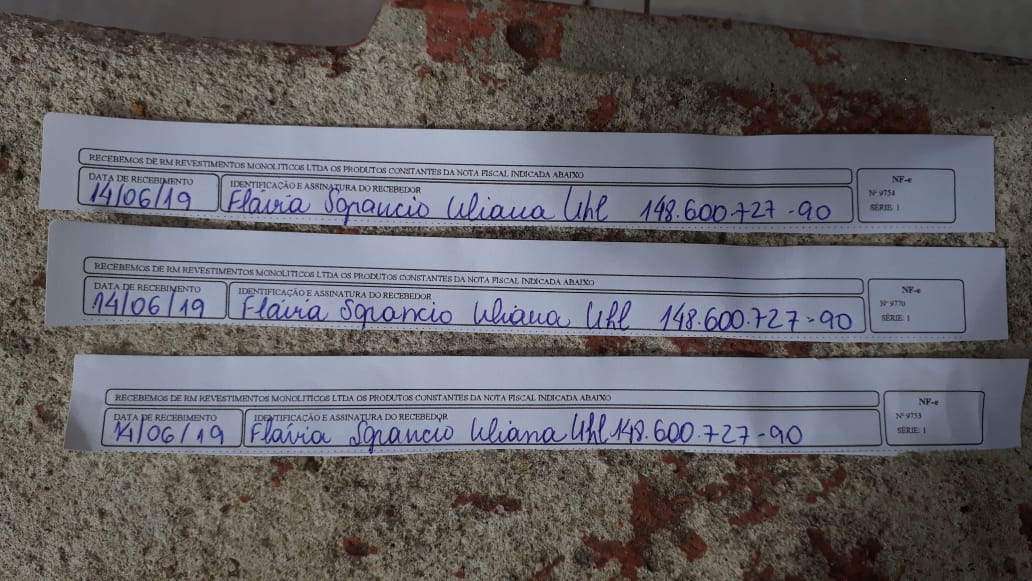 RECEBEMOS DE RM REVESTIMENTOS MONOLITICOS LTDA OS PRODUTOS CONSTANTES DA NOTA FISCAL INDICADA ABAIXO
NF-e
DATA DE RECEBIMENTO
IDENTIFICAÇÃO E ASSINATURA DO RECEBEDOR
Nº 9754
14/06/19
Flávia Sgrancio Uliana Uhl 148.600.727-90
SÉRIE: 1
RECEBEMOS DE RM REVESTIMENTOS MONOLITICOS LTDA OS PRODUTOS CONSTANTES DA NOTA FISCAL INDICADA ABAIXO
NF-e
DATA DE RECEBIMENTO
IDENTIFICAÇÃO E ASSINATURA DO RECEBEDOR
Nº 9770
14/06/19
Flávia Sgrancio Uliana Uhl 148.600.727-90
SÉRIE: 1
RECEBEMOS DE RM REVESTIMENTOS MONOLITICOS LTDA OS PRODUTOS CONSTANTES DA NOTA FISCAL INDICADA ABAIXO
NF-e
DATA DE RECEBIMENTO
IDENTIFICAÇÃO E ASSINATURA DO RECEBEDOR
Nº 9753
14/06/19
Flávia Sgrancio Uliana Uhl 148.600.727-90
SÉRIE: 1